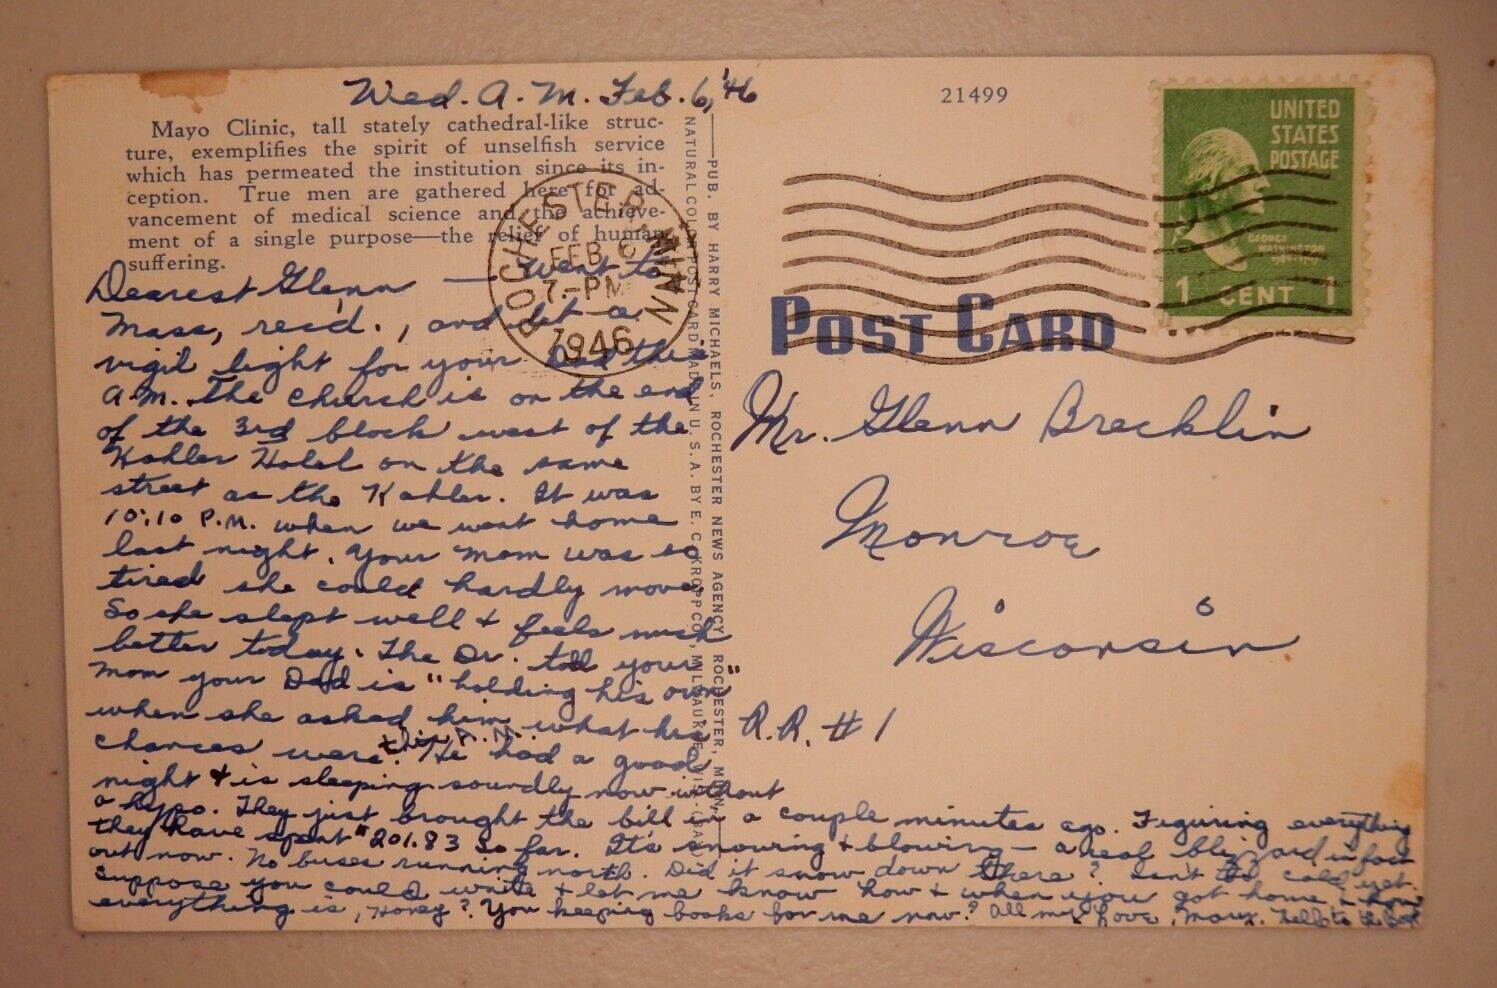 Wed. A.M. Feb. 6, '46
Mayo Clinic, tall stately cathedral-like struc-
ture, exemplifies the spirit of unselfish service
which has permeated the institution since its in-
ception. True men are gathered here for ad-
vancement of medical science and the achieve-
ment of a single purpose—the relief of human
suffering.
Dearest Glenn — Went to
Mass, rec'd., and lit a
vigil light for your Dad this
A.M. The church is on the end
of the 3rd block west of the
Kahler Hotel on the same
street as the Kahler. It was
10:10 P.M. when we went home
last night. Your Mom was so
tired she could hardly move.
So she slept well & feels much
better today. The Dr. told your
Mom your Dad is "holding his own"
when she asked him what his
chances were this A.M. He had a good
night & is sleeping soundly now without
a hypo. They just brought the bill in a couple minutes ago. Figuring everything
they have spent $201.83 so far. It's snowing & blowing — a real blizzard in fact
out now. No buses running north. Did it snow down there? Isn't too cold yet.
Suppose you could write & let me know how & when you got home & how
everything is, Honey? You keeping books for me now? All my Love, Marx. Hello to the
ROCHESTER, MINN
FEB 6
7-PM
1946
PUB. BY HARRY MICHAELS, ROCHESTER NEWS AGENCY, ROCHESTER, MINN.
NATURAL COLOR POST CARD MADE IN U. S. A. BY E. C. KROPP CO., MILWAUKEE, WIS.
21499
UNITED
STATES
POSTAGE
GEORGE
WASHINGTON
1 CENT 1
POST CARD
Mr. Glenn Brecklin
Monroe
Wisconsin
R.R. #1